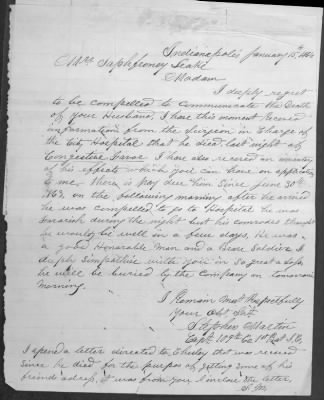 Indianapolis January 15th 1864
Mrs Saphroney Leake
Madam
I deeply regret
to be compelled to communicate the Death
of your Husband, I have this moment Received
information from the Surgeon in Charge of
the City Hospital that he died last night of
Congestive I have also received an inventory
of his effects which you can have on application
to me, there is pay due him Since June 30th
1863, on the following morning after he arrived
he was compelled to go to Hospital he was
during the night but his comrades thought
he would be well in a few days, He was
a good Honorable Man and a Brave Soldier I
deeply Simpathise with you in So great a loss
he will be buried by the Company on tomorrow
morning.
I Remain Most Respectfully
Your Obt Svt
Stephen
Capt 109th Co 1st Bat I.C.
I opend a letter directed to that was received
Since he died for the purpos of getting Some of his
friends adress, it was from you I inclose the letter,
S. M.